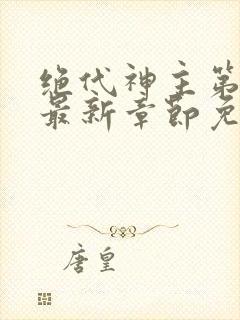 绝代神主第
最新章節免
唐皇